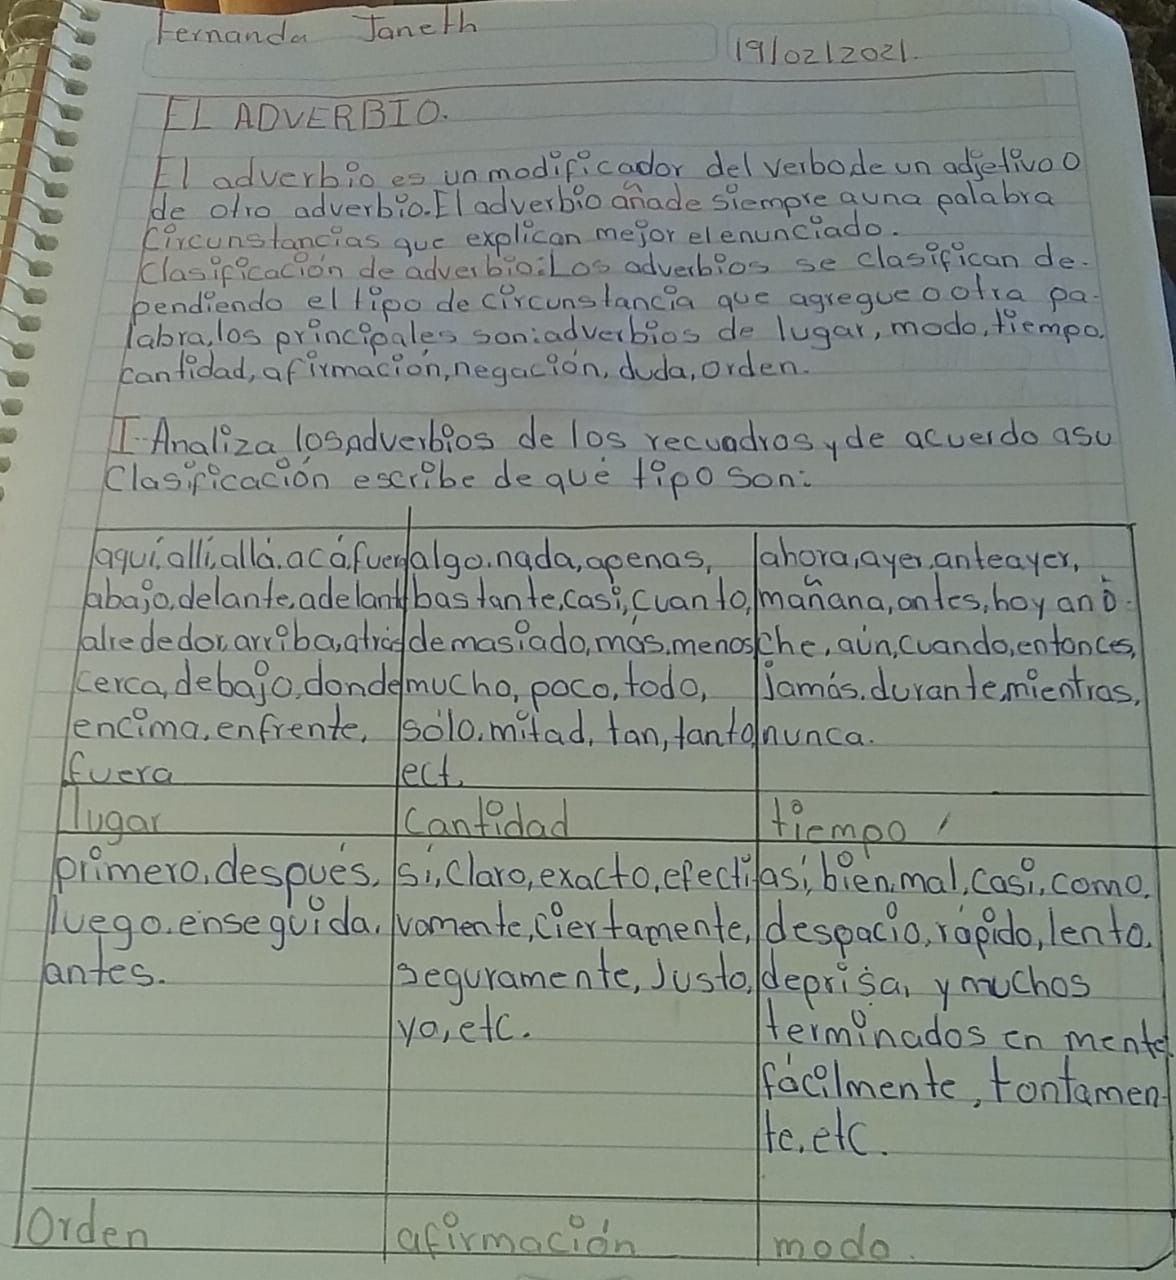 Fernanda Janeth
19/02/2021.
EL ADVERBIO.
El adverbio es un modificador del verbo de un adjetivo o
de otro adverbio. El adverbio añade siempre a una palabra
circunstancias que explican mejor el enunciado.
Clasificación de adverbio: Los adverbios se clasifican de-
pendiendo el tipo de circunstancia que agregue o otra pa-
labra, los principales son: adverbios de lugar, modo, tiempo,
cantidad, afirmación, negación, duda, orden.
I-Analiza los Adverbios de los recuadros y de acuerdo a su
Clasificación escribe de qué tipo son:
aquí, allí, allá, acá, fuera
abajo, delante, adelant
alrededor, arriba, atrás
cerca, debajo, donde
encima, enfrente,
fuera
algo, nada, apenas,
bastante, casi, cuanto,
demasiado, más, menos
mucho, poco, todo,
sólo, mitad, tan, tanto
ect.
ahora, ayer, anteayer,
mañana, antes, hoy ano-
che, aún, cuando, entonces,
jamás, durante, mientras,
nunca.
lugar
cantidad
tiempo
primero, después,
luego, enseguida,
antes.
sí, claro, exacto, efecti
vamente, ciertamente,
seguramente, justo,
ya, etc.
así, bien, mal, casi, como,
despacio, rápido, lento,
deprisa, y muchos
terminados en mente
fácilmente, tontamen
te, etc.
Orden
afirmación
modo.